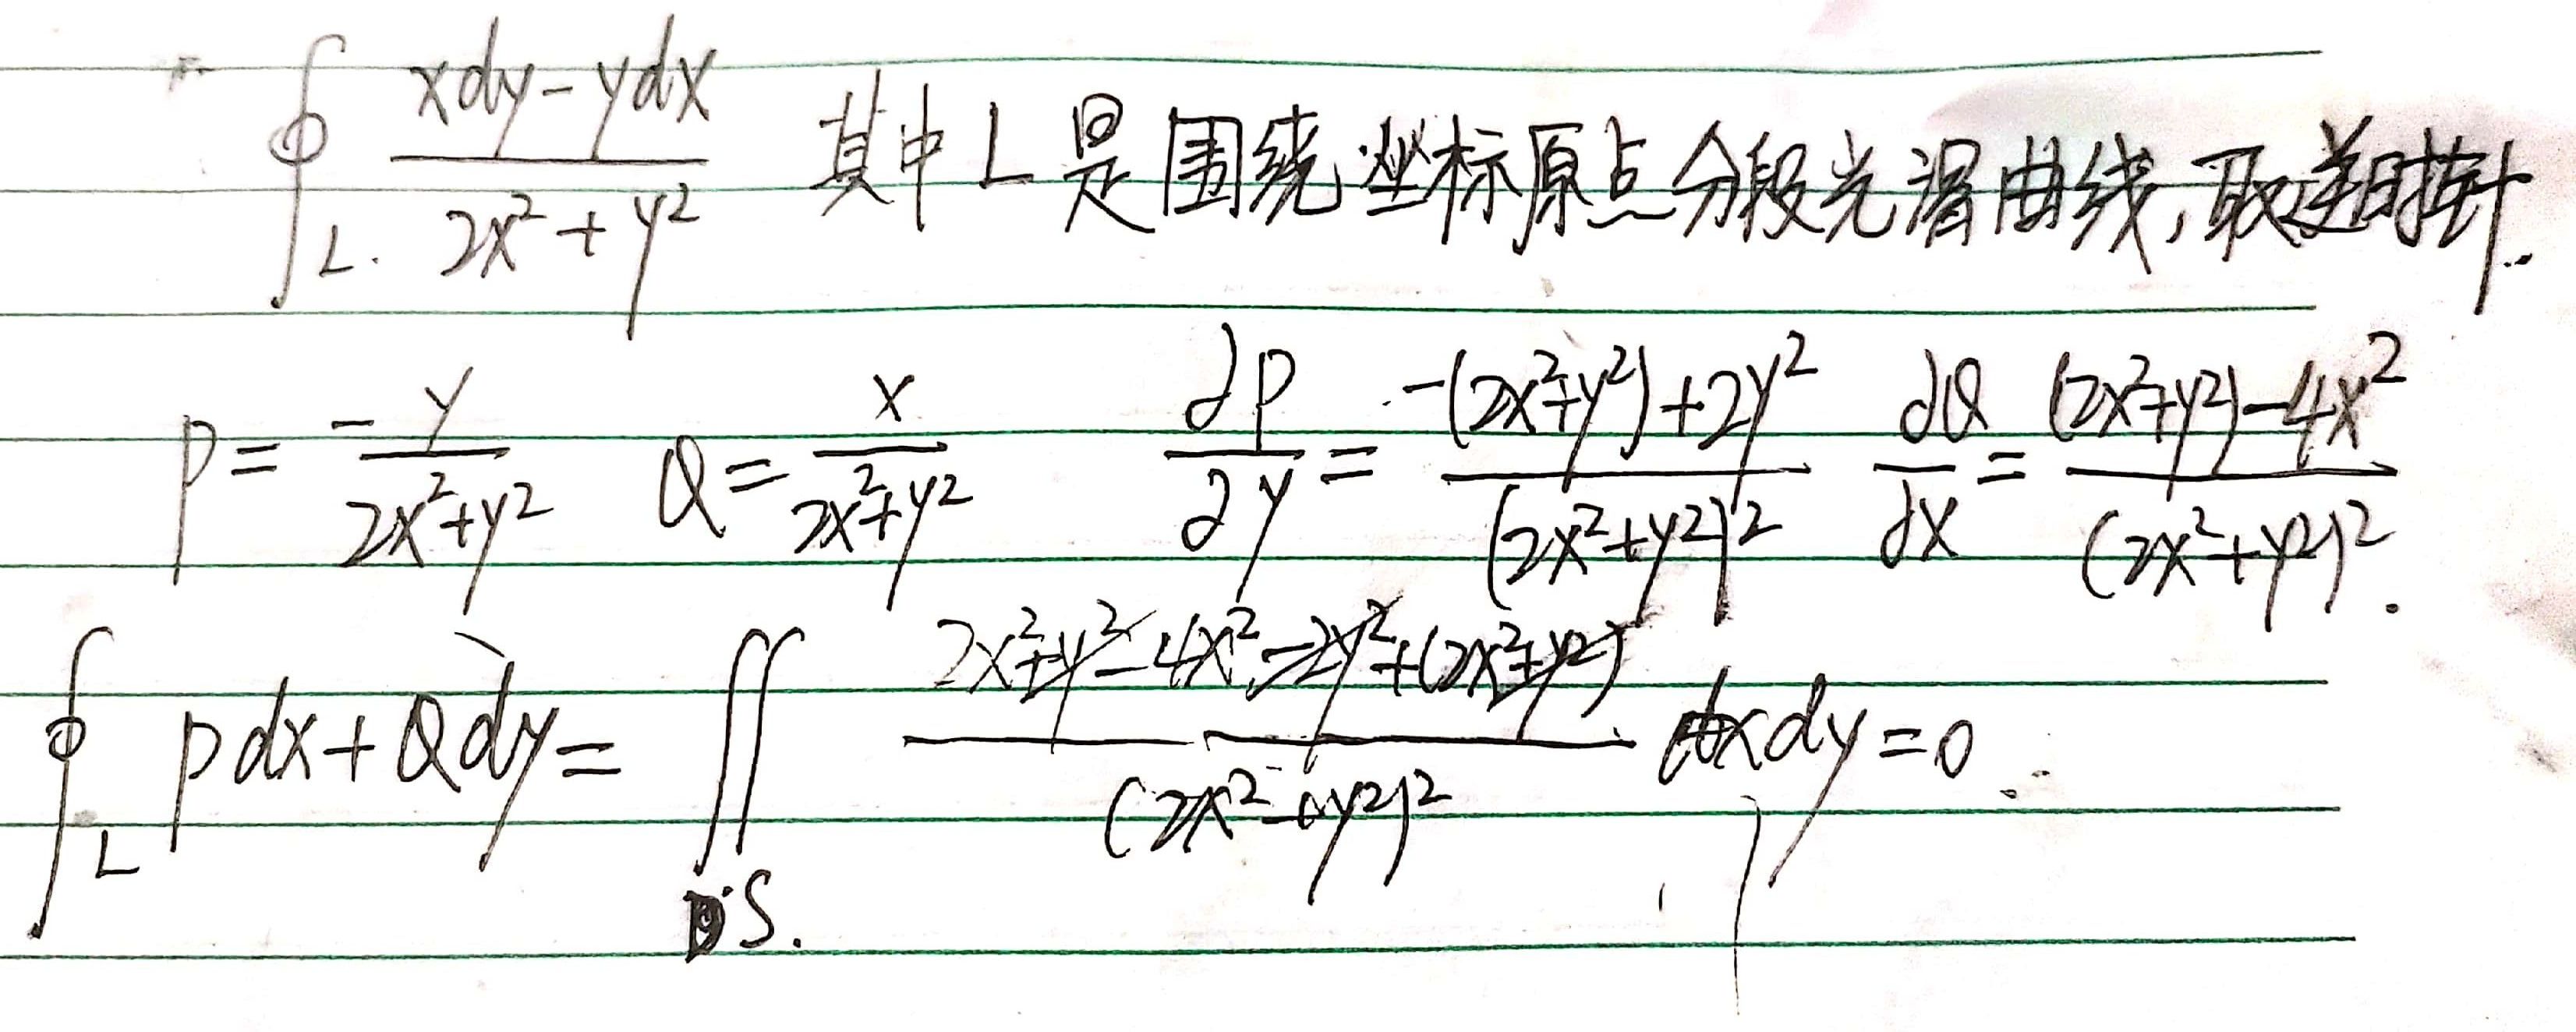 ∮_L (xdy-ydx)/(2x²+y²) 其中L是围绕坐标原点分段光滑曲线,取逆时针.
P = -y/(2x²+y²) Q = x/(2x²+y²) ∂P/∂y = (-(2x²+y²)+2y²)/(2x²+y²)² ∂Q/∂x = ((2x²+y²)-4x²)/(2x²+y²)².
∮_L Pdx+Qdy = ∬_S. (2x²+y²-4x²-2y²+(2x²+y²))/(2x²+y²)² dxdy = 0.